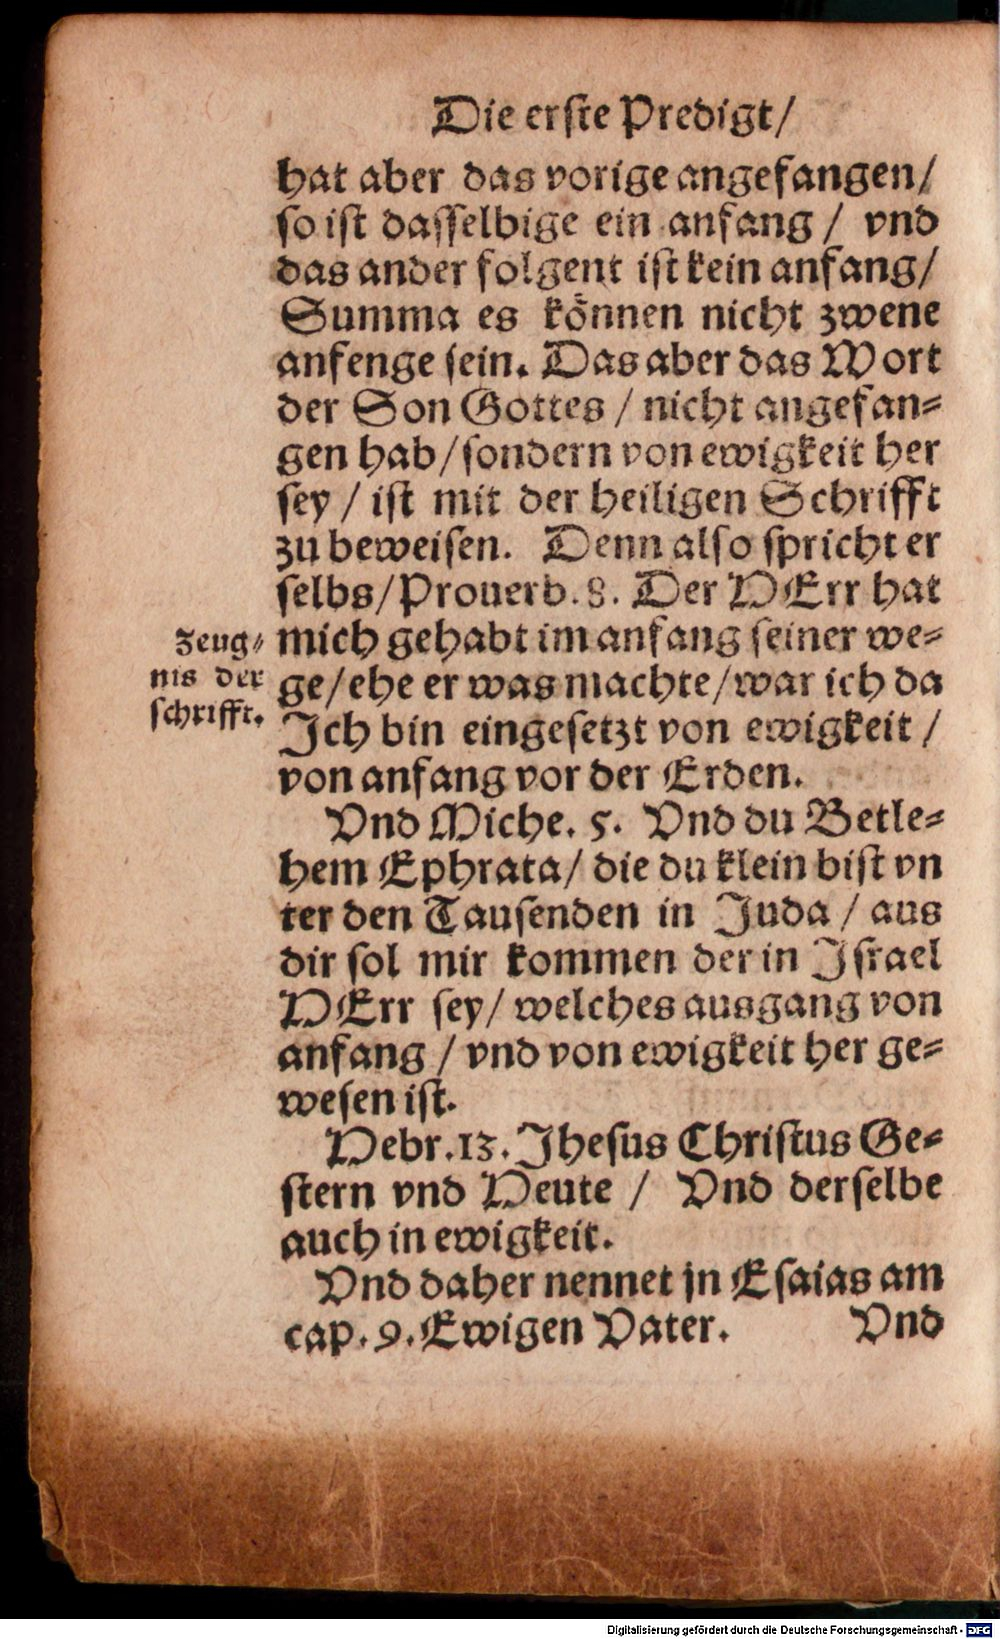 Die erste Predigt/
hat aber das vorige angefangen/
so ist dasselbige ein anfang / vnd
das ander folgent ist kein anfang/
Summa es können nicht zwene
anfenge sein. Das aber das Wort
der Son Gottes / nicht angefan-
gen hab/sondern von ewigkeit her
sey / ist mit der heiligen Schrifft
zu beweisen. Denn also spricht er
selbs/Prouerb. 8. Der HErr hat
Zeug-
nis der
schrifft.
mich gehabt im anfang seiner we-
ge/ehe er was machte/war ich da
Ich bin eingesetzt von ewigkeit /
von anfang vor der Erden.
Vnd Miche. 5. Vnd du Betle-
hem Ephrata/ die du klein bist vn
ter den Tausenden in Juda / aus
dir sol mir kommen der in Israel
HErr sey/ welches ausgang von
anfang / vnd von ewigkeit her ge-
wesen ist.
Hebr.13. Jhesus Christus Ge-
stern vnd Heute / Vnd derselbe
auch in ewigkeit.
Vnd daher nennet jn Esaias am
cap. 9. Ewigen Vater. Vnd
Digitalisierung gefördert durch die Deutsche Forschungsgemeinschaft - DFG